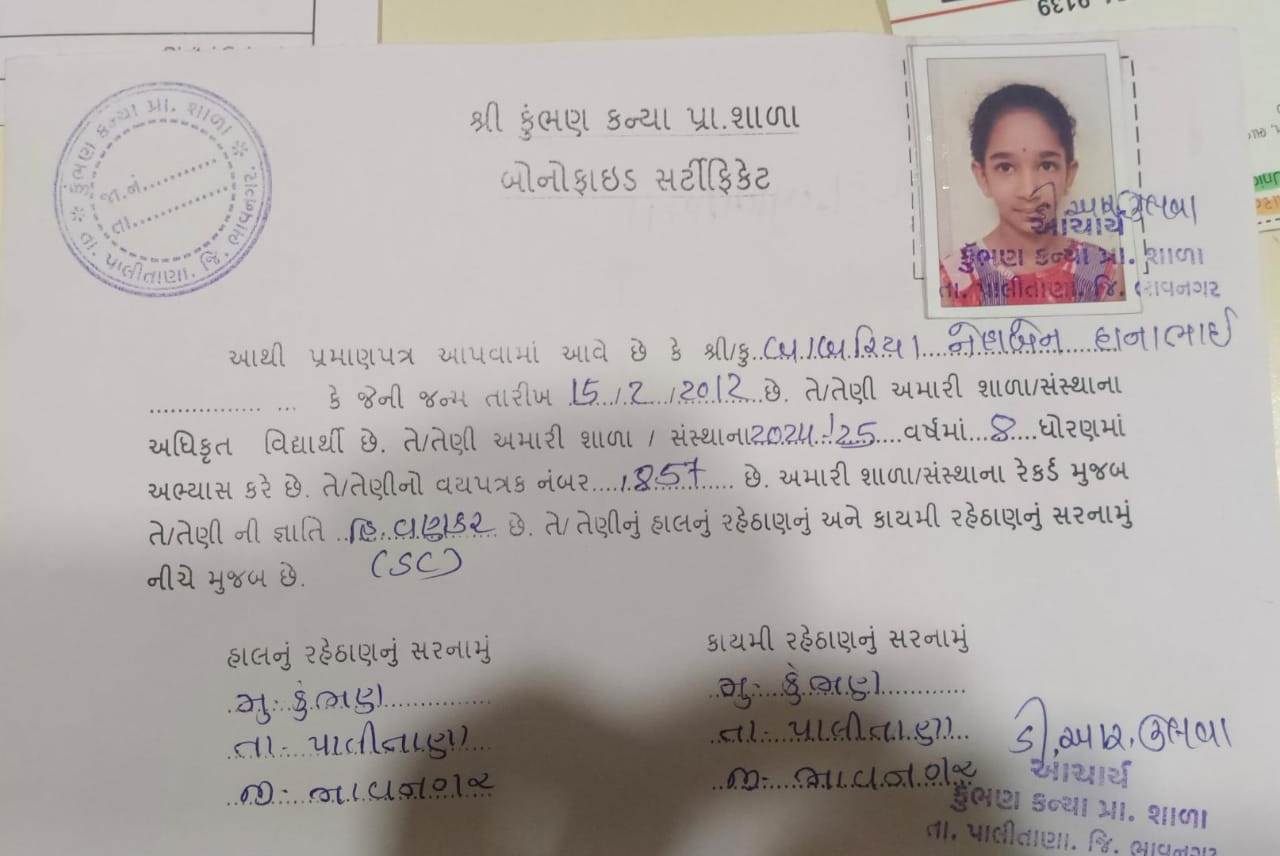 9139
કુંભણ કન્યા પ્રા. શાળા
જા.નં.
તા.
તા. પાલીતાણા. જિ. ભાવનગર.
શ્રી કુંભણ કન્યા પ્રા.શાળા
બોનોફાઇડ સર્ટીફિકેટ
આચાર્ય
કુંભણ કન્યા પ્રા. શાળા
તા. પાલીતાણા. જિ. ભાવનગર
આથી પ્રમાણપત્ર આપવામાં આવે છે કે શ્રી/કુ..બાબરિયા....નેહાબેન હાનાભાઈ
............... ... કે જેની જન્મ તારીખ 15../.2../2012..છે. તે/તેણી અમારી શાળા/સંસ્થાના
અધિકૃત વિદ્યાર્થી છે. તે/તેણી અમારી શાળા / સંસ્થાના2024-25....વર્ષમાં..8....ધોરણમાં
અભ્યાસ કરે છે. તે/તેણીનો વયપત્રક નંબર....1857..... છે. અમારી શાળા/સંસ્થાના રેકર્ડ મુજબ
તે/તેણી ની જ્ઞાતિ ..હિ.વણકર છે. તે/ તેણીનું હાલનું રહેઠાણનું અને કાયમી રહેઠાણનું સરનામું
નીચે મુજબ છે. (SC)
હાલનું રહેઠાણનું સરનામું
મુ:- કુંભણ
તા:- પાલીતાણા
જી:- ભાવનગર
કાયમી રહેઠાણનું સરનામું
મુ:- કુંભણ
તા:- પાલીતાણા
જી:- ભાવનગર
ડી.આર.
આચાર્ય
કુંભણ કન્યા પ્રા. શાળા
તા. પાલીતાણા. જિ. ભાવનગર